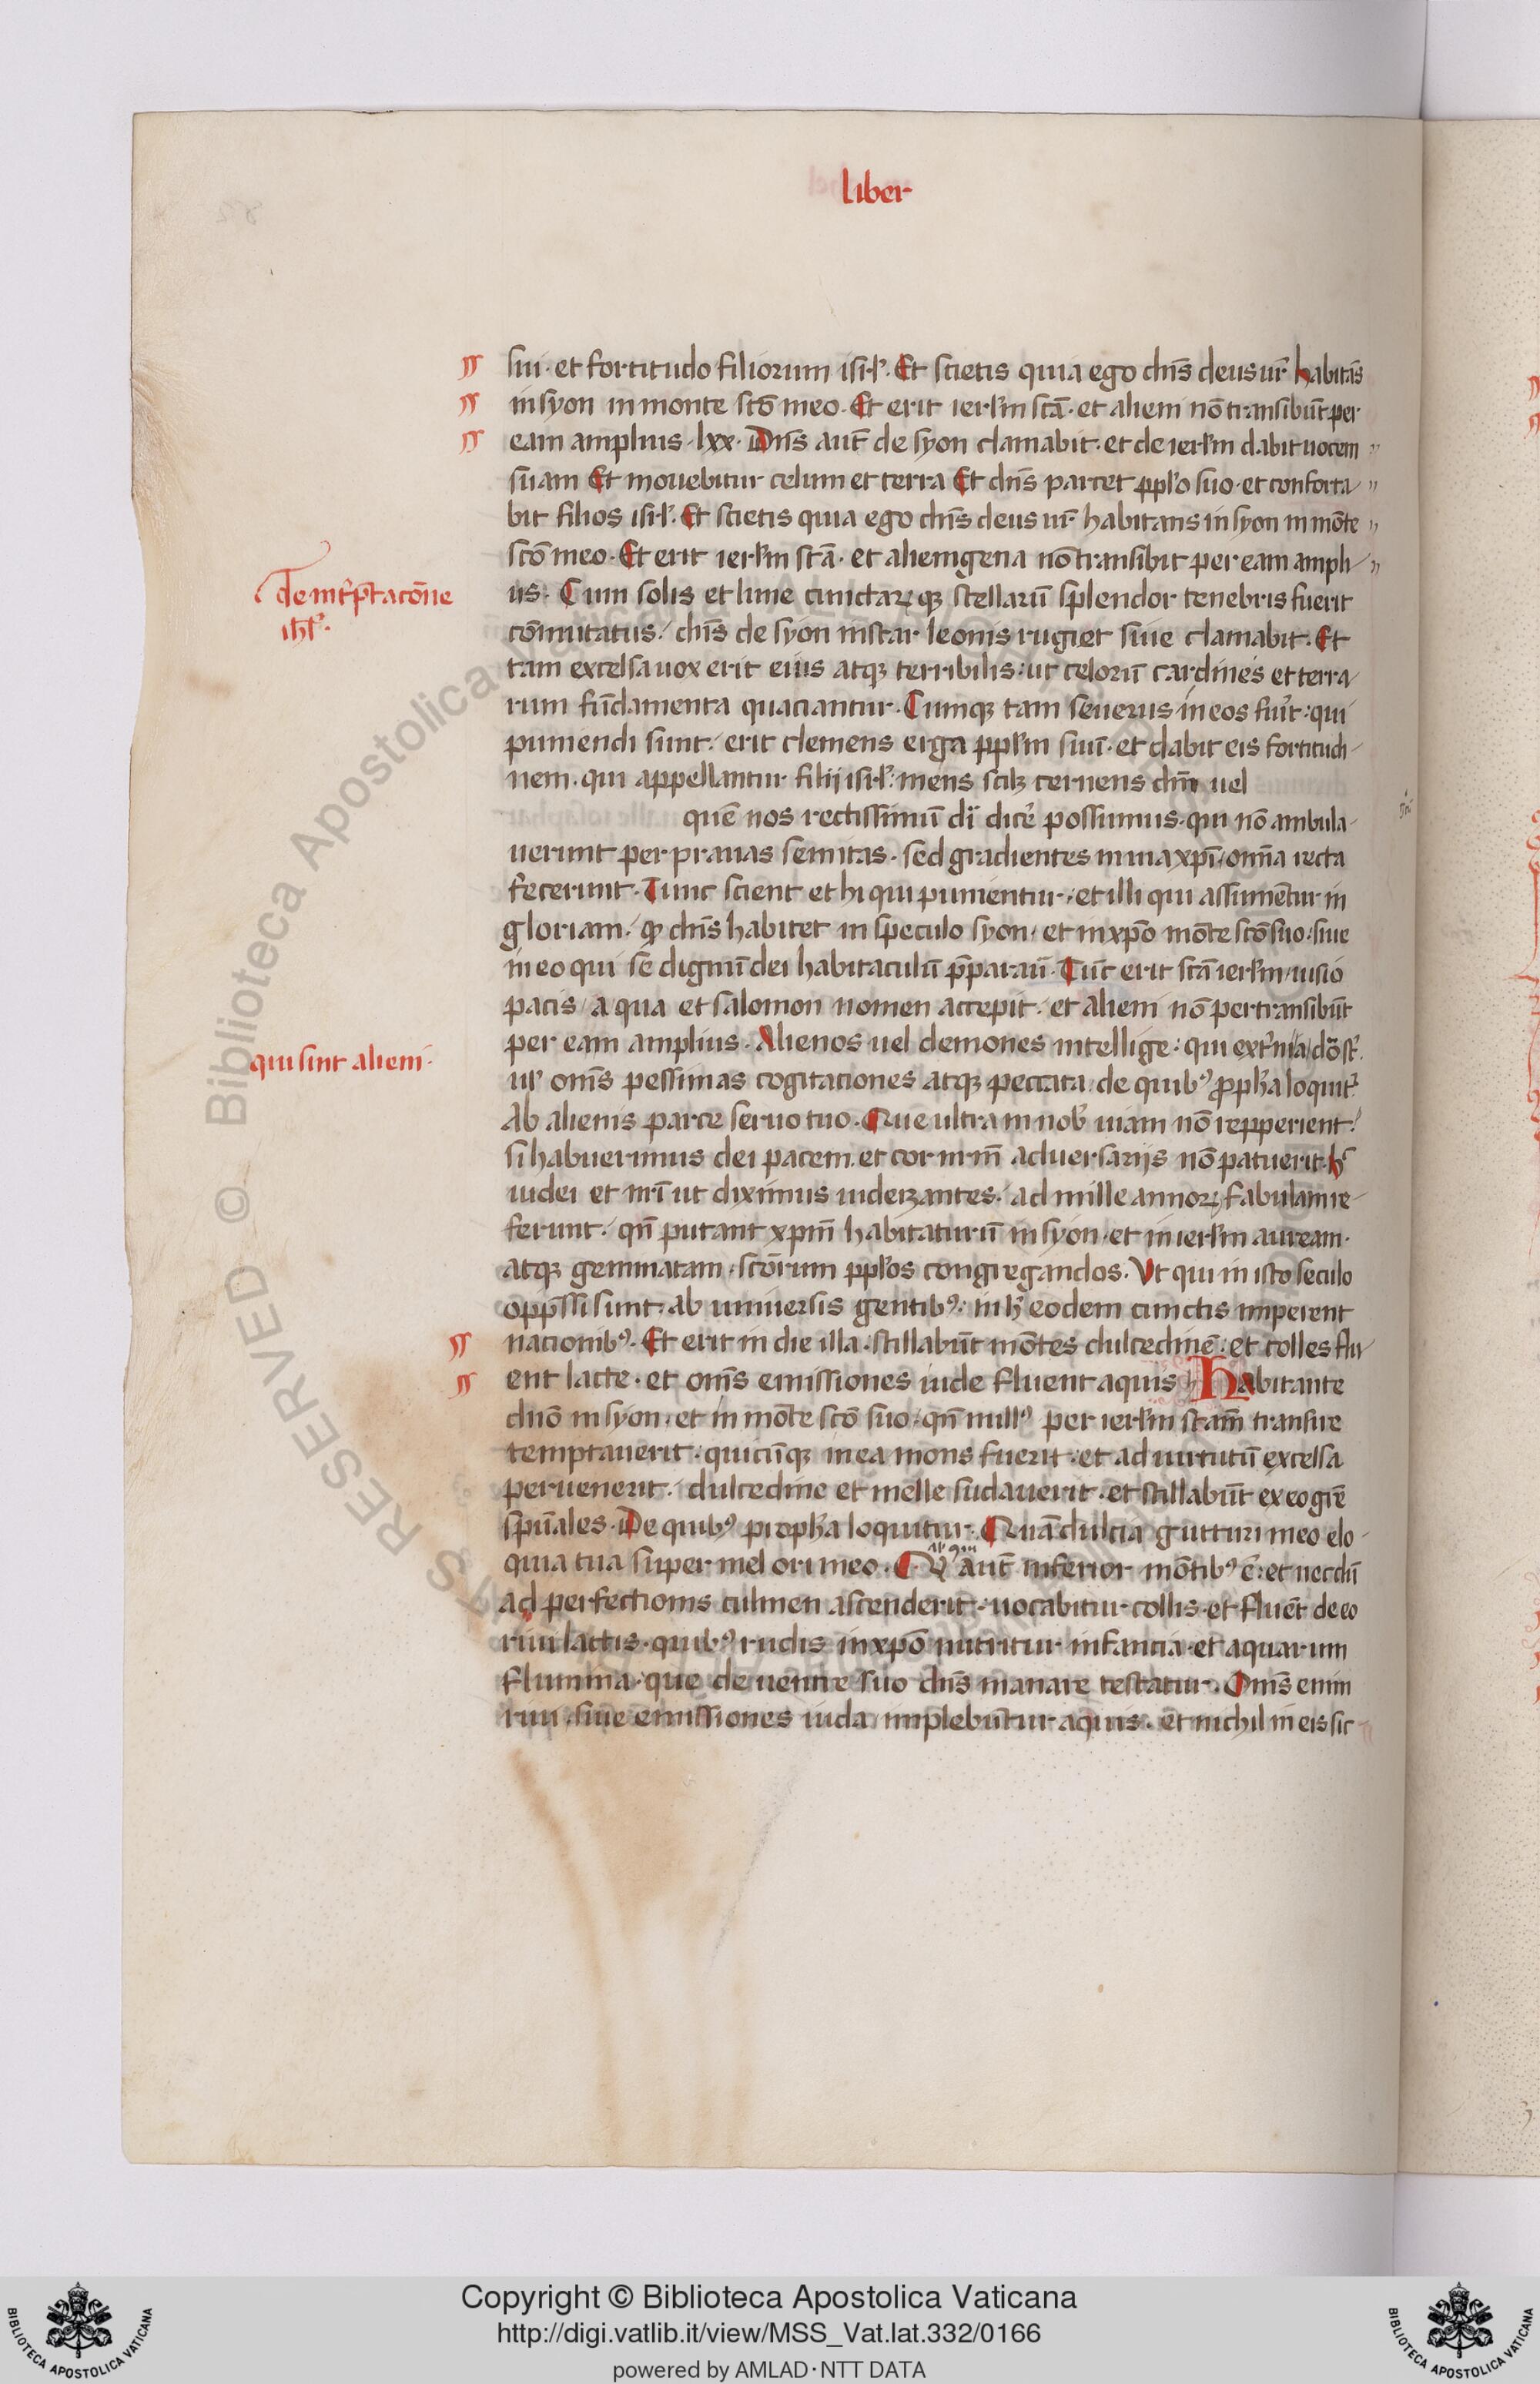 liber
sui · et fortitudo filiorum isrl̅. Et scietis quia ego dn̅s deus ur̅ habitās
in syon in monte sc̅o meo. Et erit ierl̅m sc̅a · et alieni nō transibūt per
eam amplius · lxx · Dn̅s aut̅ de syon clamabit · et de ierl̅m dabit uocem
suam Et mouebitur celum et terra Et dn̅s parcet ppl̅o suo · et conforta
bit filios isrl̅. Et scietis quia ego dn̅s deus ur̅ habitans in syon in mōte
sc̅o meo · Et erit ierl̅m sc̅a · et alienigena nō transibit per eam ampli
us · Cum solis et lune cunctarꝝ qꝫ stellarū splendor tenebris fuerit
cōmutatus / dn̅s de syon instar leonis rugiet siue clamabit. Et
tam excelsa uox erit eius atqꝫ terribilis : ut celorū cardines et terra
rum fūdamenta quaciantur. Cumqꝫ tam seuerus in eos fuit̅ : qui
puniendi sunt / erit clemens erga ppl̅m suū · et dabit eis fortitudi
nem · qui appellantur filij isrl̅ : mens scilꝫ cernens dm̅ uel
quē nos rectissimū di̅ dice̅ possumus · qui nō ambula
uerunt per prauas semitas · sed gradientes in uia xp̅i / om̅a recta
fecerunt · Tunc scient et hi qui punientur · et illi qui assumētur in
gloriam / ꝙ dn̅s habitet in speculo syon · et in xp̅o mōte sc̅o suo · siue
in eo qui se dignū dei habitaculū p̅parauı̅ · Tūc erit sc̅a ierl̅m / uisio
pacis / a qua et salomon nomen accepit / et alieni nō pertransibūt
per eam amplius · Alienos uel demones intellige : qui
ul̅ om̅s pessimas cogitationes atqꝫ peccata / de quibꝰ ꝓph̅a loquit̅
Ab alienis parce seruo tuo · Que ultra in nob̅ uiam nō repperient /
si habuerimus dei pacem · et cor nr̅m aduersarijs nō patuerit · h̅
iudei et nr̅i ut diximus iudeizantes / ad mille annorꝝ fabulam re
ferunt / qn̅ putant xpm̅ habitaturū in syon · et in ierl̅m auream ·
atqꝫ gemmatam · sc̅orum ppl̅os congregandos. Vt qui in isto seculo
opp̅ssi sunt · ab uniuersis gentibꝰ : in h̅ eodem cunctis imperent
nacionibꝰ. Et erit in die illa · stillabūt mōtes dulcedinē : et colles flu
ent lacte · et om̅s emissiones iude fluent aquis Habitante
dn̅o in syon · et in mōte sc̅o suo · qn̅ nullꝰ per ierl̅m sc̅am transire
temptauerit : quicūqꝫ in ea mons fuerit · et ad uirtutū excelsa
peruenerit / dulcedine et melle sudauerit · et stillabūt ex eo
spūales · De quibꝰ propħa loquitur. Quā dulcia gutturi meo elo
quia tua super mel ori meo · aut̅ inferior mōtibꝰ ē : et necdū
ad perfectionis culmen ascenderit · uocabitur collis · et fluēt de eo
riui lactis · quibꝰ rudis in xp̅o nutritur infancia · et aquarum
flumina · que de uentre suo dn̅s manare testatur. Om̅s enim
riui · siue emissiones iuda implebūtur aquis · et nichil in eis sic
qui sint alieni ·
Copyright © Biblioteca Apostolica Vaticana
http://digi.vatlib.it/view/MSS_Vat.lat.332/0166
powered by AMLAD · NTT DATA